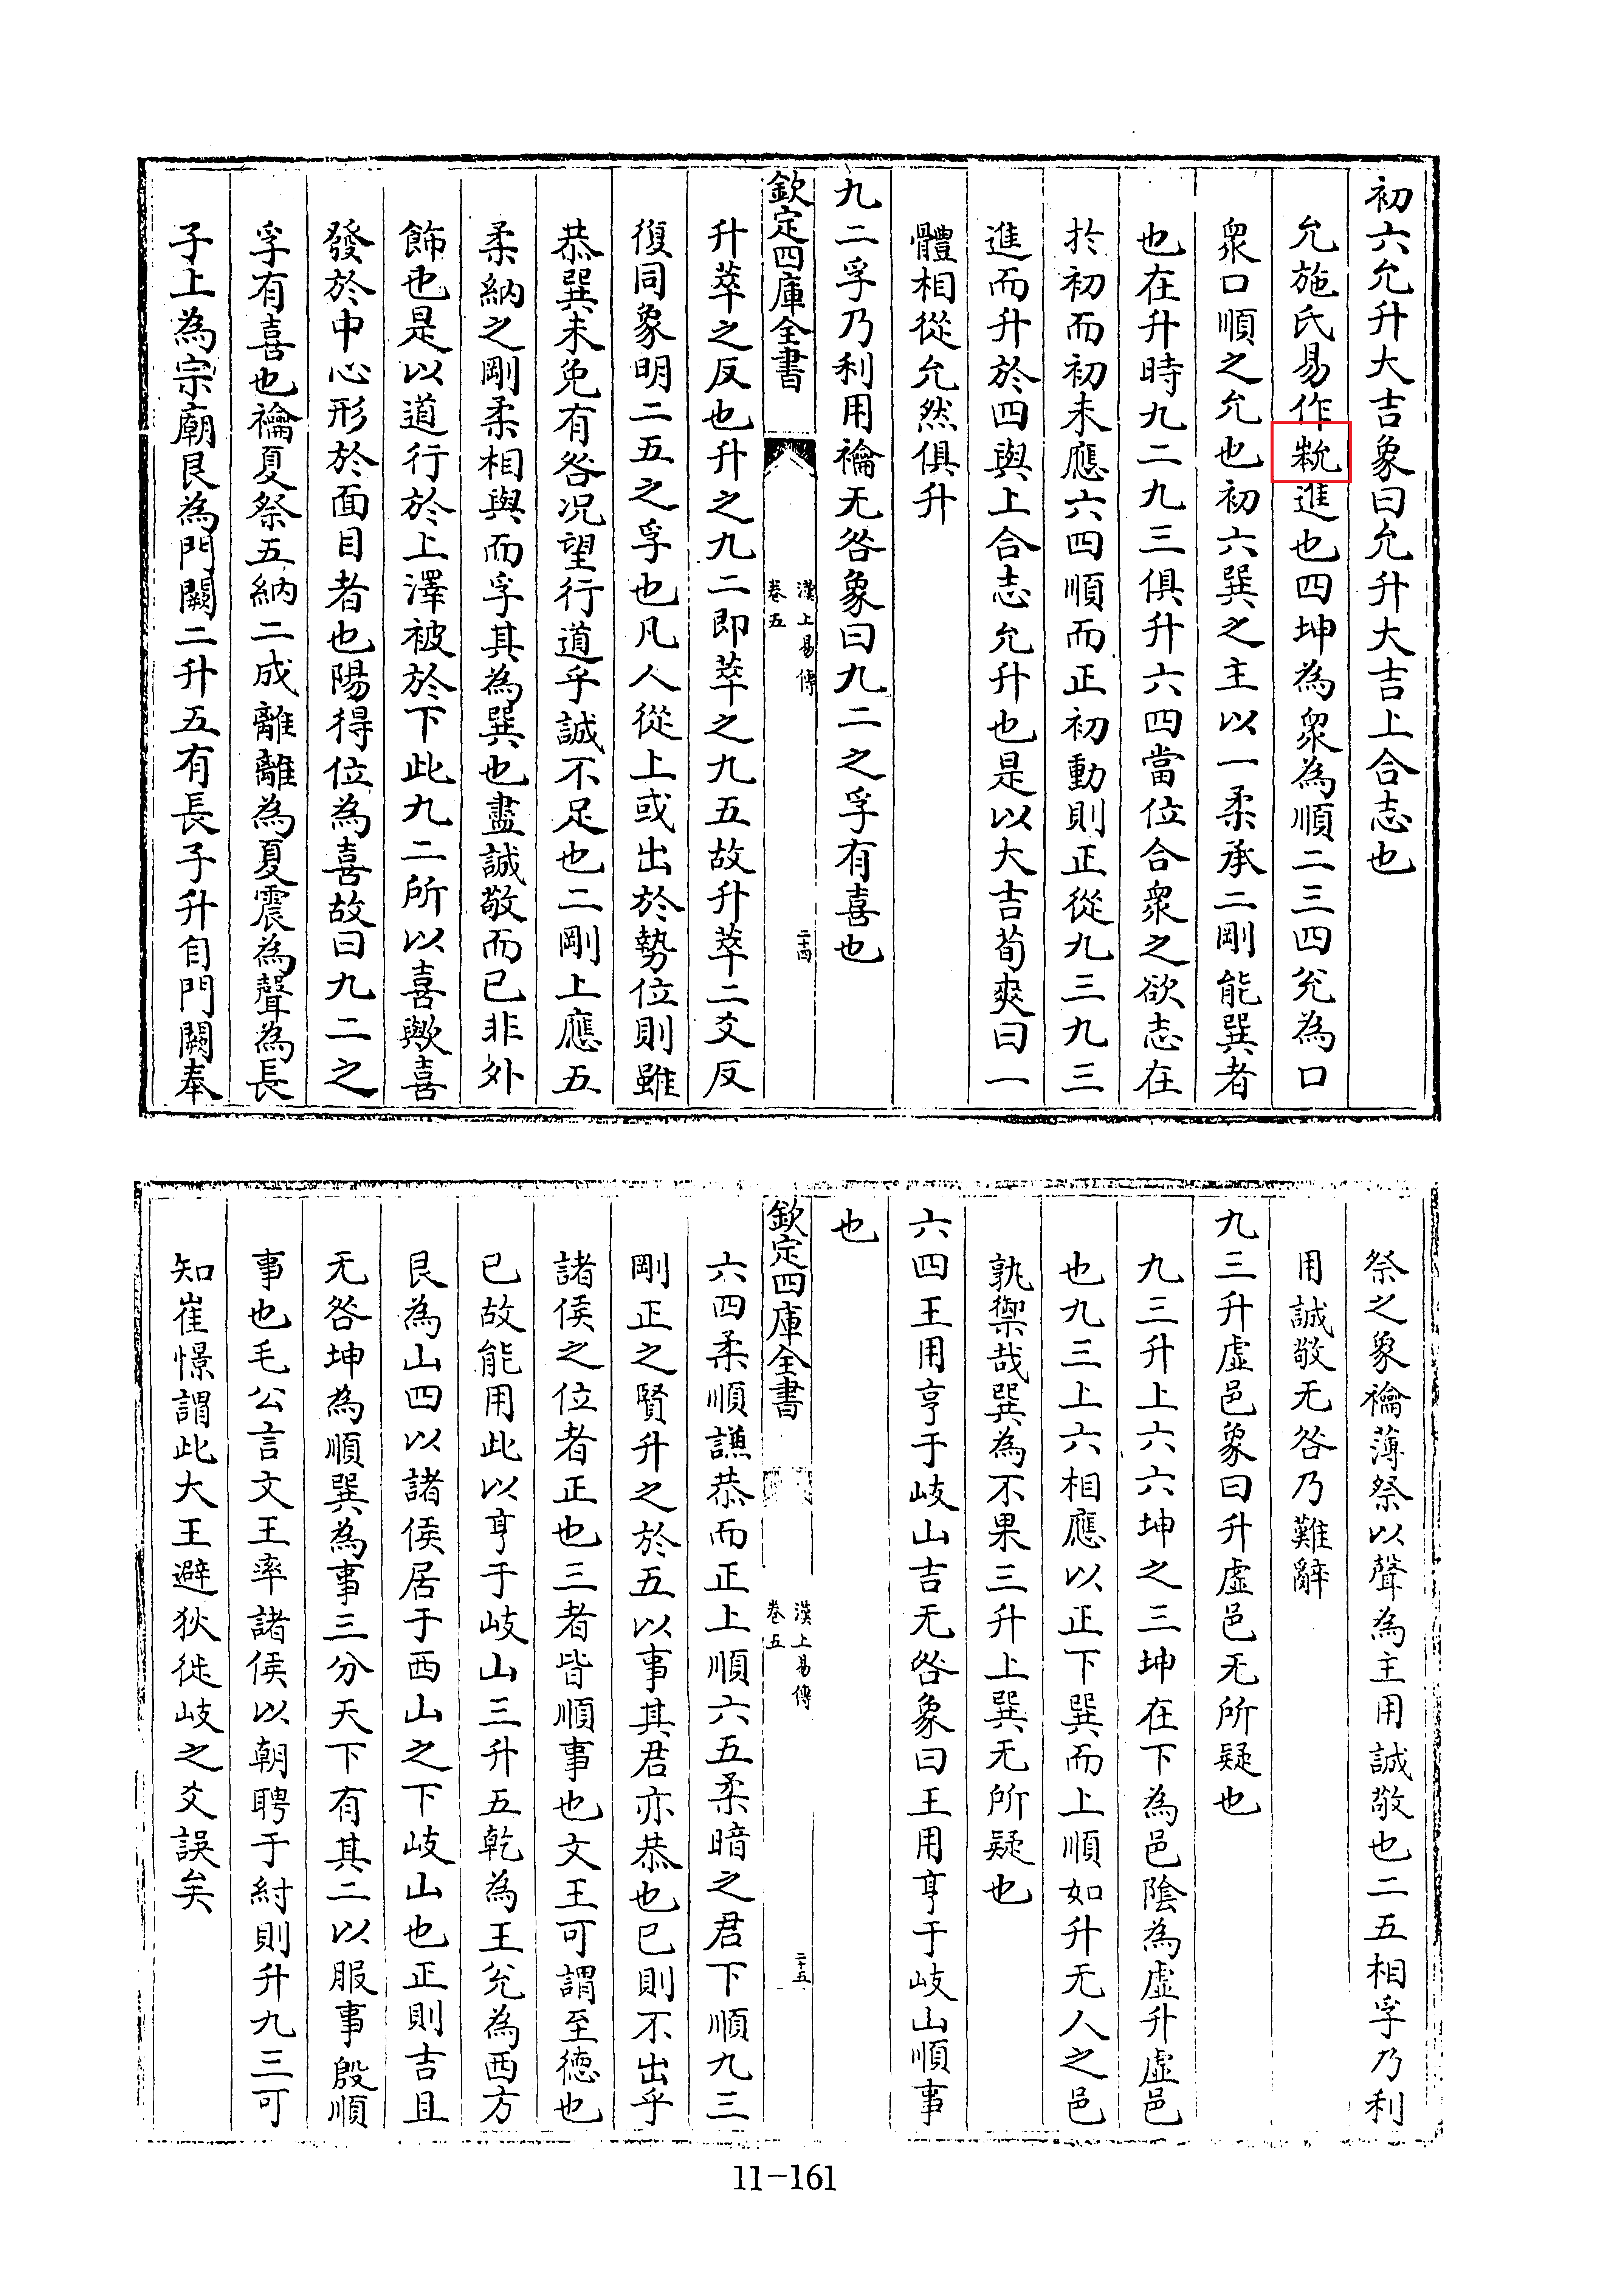 初六允升大吉象曰允升大吉上合志也
允施氏易作進也四坤為衆為順二三四兊為口
衆口順之允也初六巽之主以一柔承二剛能巽者
也在升時九二九三俱升六四當位合衆之欲志在
扵初而初未應六四順而正初動則正從九三九三
進而升於四與上合志允升也是以大吉荀爽曰一
體相從允然俱升
九二孚乃利用禴无咎象曰九二之孚有喜也
欽定四庫全書
漢上易傳
卷五
二十四
升萃之反也升之九二即萃之九五故升萃二爻反
復同象明二五之孚也凡人從上或出於勢位則雖
恭巽未免有咎况望行道乎誠不足也二剛上應五
柔納之剛柔相與而孚其為巽也盡誠敬而已非外
飾也是以道行於上澤被於下此九二所以喜歟喜
發於中心形於面目者也陽得位為喜故曰九二之
孚有喜也禴夏祭五納二成離離為夏震為聲為長
子上為宗廟艮為門闕二升五有長子升自門闕奉
祭之象禴薄祭以聲為主用誠敬也二五相孚乃利
用誠敬无咎乃難辭
九三升虛邑象曰升虛邑无所疑也
九三升上六六坤之三坤在下為邑陰為虛升虛邑
也九三上六相應以正下巽而上順如升无人之邑
孰禦哉巽為不果三升上巽无所疑也
六四王用亨于岐山吉无咎象曰王用亨于岐山順事
也
欽定四庫全書
漢上易傳
卷五
二十五
六四柔順謙恭而正上順六五柔暗之君下順九三
剛正之賢升之於五以事其君亦恭也已則不出乎
諸侯之位者正也三者皆順事也文王可謂至徳也
已故能用此以亨于岐山三升五乾為王兊為西方
艮為山四以諸侯居于西山之下岐山也正則吉且
无咎坤為順巽為事三分天下有其二以服事殷順
事也毛公言文王率諸侯以朝聘于紂則升九三可
知崔憬謂此大王避狄徙岐之爻誤矣
11-161